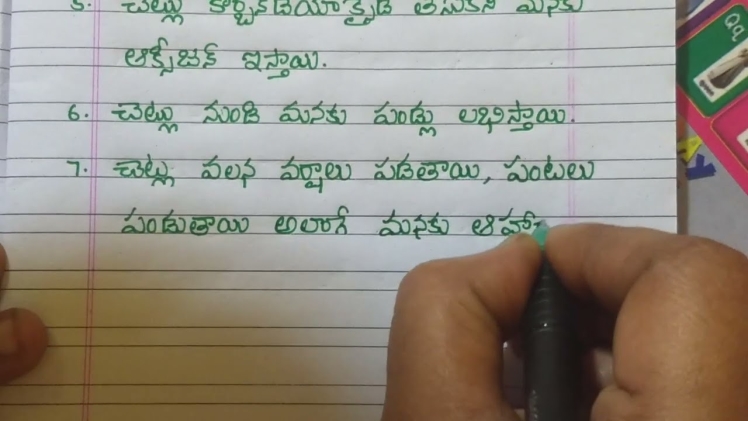 5. చెట్లు కార్బన్‌డయాక్సైడ్ తీసుకొని మనకు
ఆక్సీజన్ ఇస్తాయి.
6. చెట్లు నుండి మనకు పండ్లు లభిస్తాయి.
7. చెట్ల వలన వర్షాలు పడతాయి, పంటలు
పండుతాయి అలాగే మనకు ఆహా